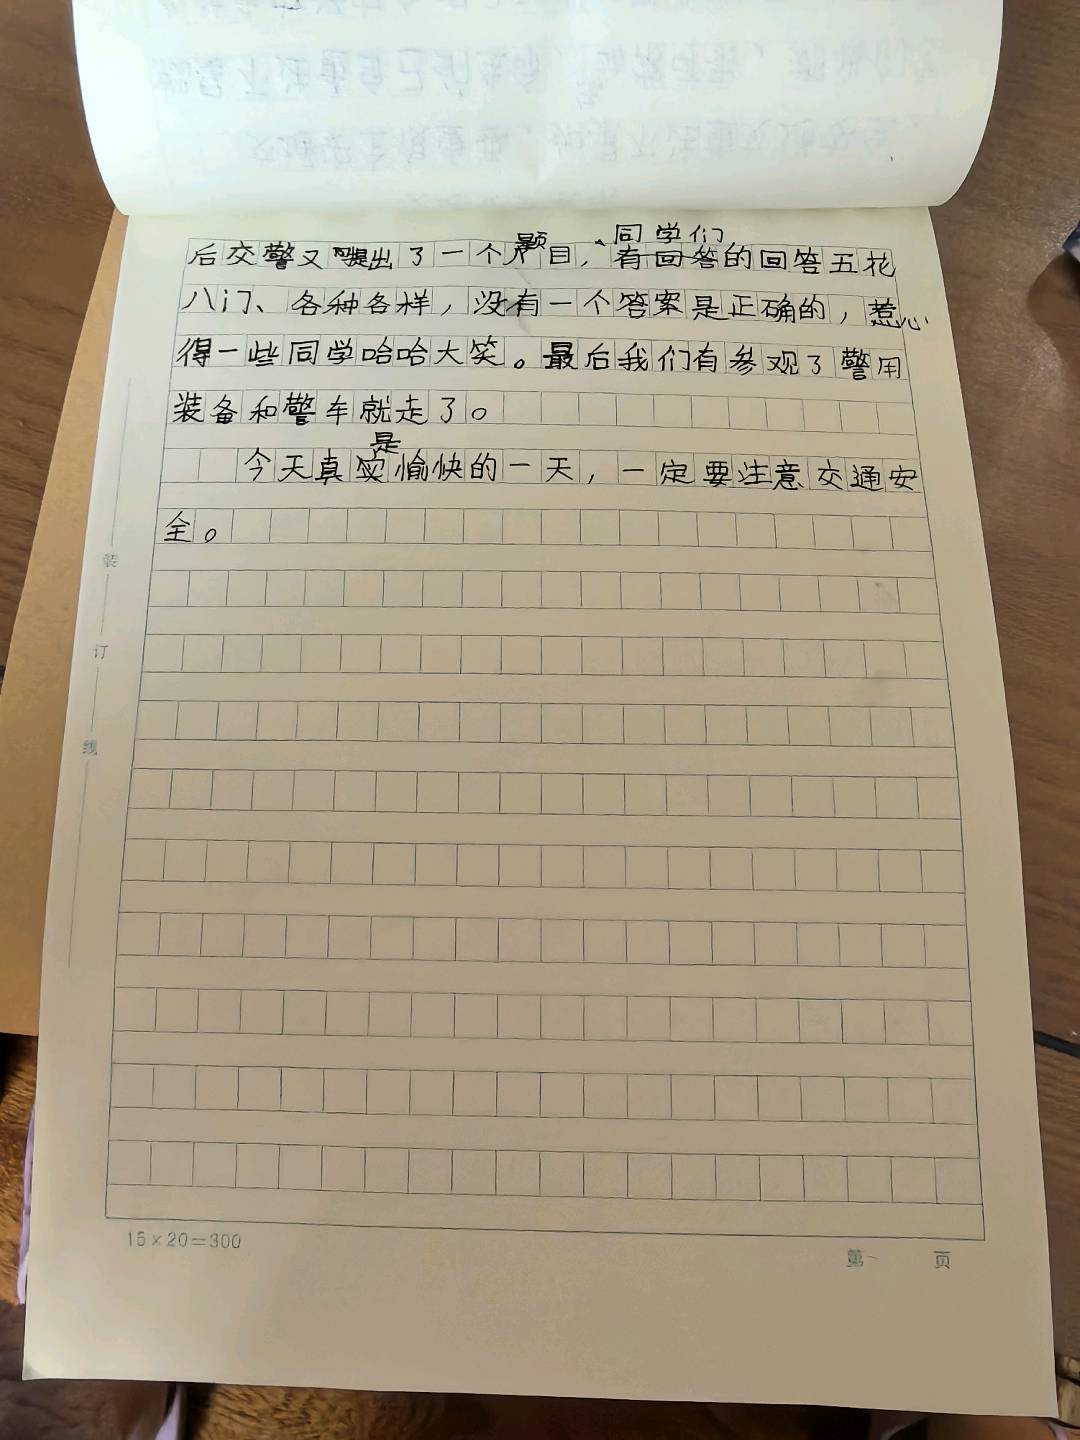 同学们
后交警又提出了一个题目，有回答的回答五花
八门、各种各样，没有一个答案是正确的，惹
得一些同学哈哈大笑。最后我们有参观了警用
装备和警车就走了。
是
今天真实愉快的一天，一定要注意交通安
全。
装
订
线
15×20=300
第一 页